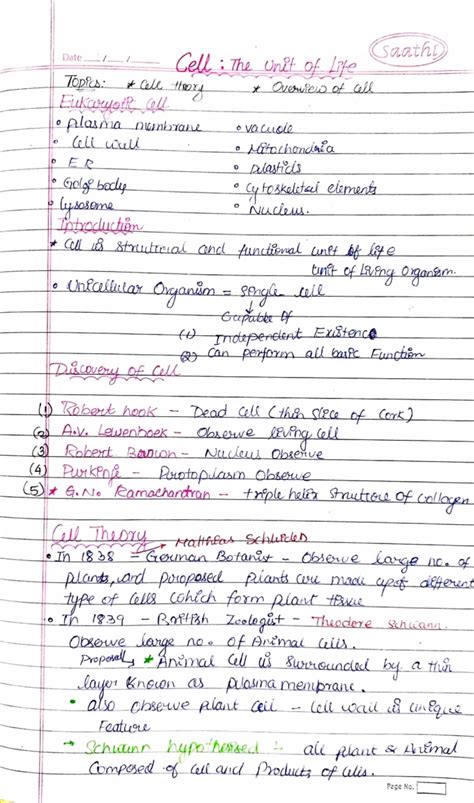 Saathi
Date ___/___/___
Cell : The Unit of Life
Topics: * Cell theory * Overview of Cell
Eukaryotic Cell
• plasma membrane • vacuole
• Cell wall • Mitochondria
• ER • Plastids
• Golgi body • Cytoskeletal elements
• lysosome • Nucleus.
Introduction
* Cell is structural and functional unit of life
unit of living organism.
• Unicellular Organism = single cell
Capable of
(1) Independent Existence
(2) Can perform all basic Function
Discovery of Cell
(1) Robert hook - Dead Cell (thin slice of Cork)
(2) A.V. Lewenhoek - Observe living cell
(3) Robert Brown - Nucleus Observe
(4) Purkinje - Protoplasm Observe
(5) * G.N. Ramachandran - triple helix structure of Collagen
Cell Theory Matthias Schleiden
• In 1838 = German Botanist - Observe large no. of
plants, and proposed plants are made up of different
type of Cells which form plant tissue
• In 1839 - British Zoologist - Theodore Schwann
Observe large no. of Animal Cells.
Proposal, * Animal Cell is surrounded by a thin
layer known as plasma membrane.
• also observe plant cell - Cell wall is unique
Feature
→ Schwann hypothesised :- all plant & Animal
Composed of Cell and Products of Cells.
Page No.